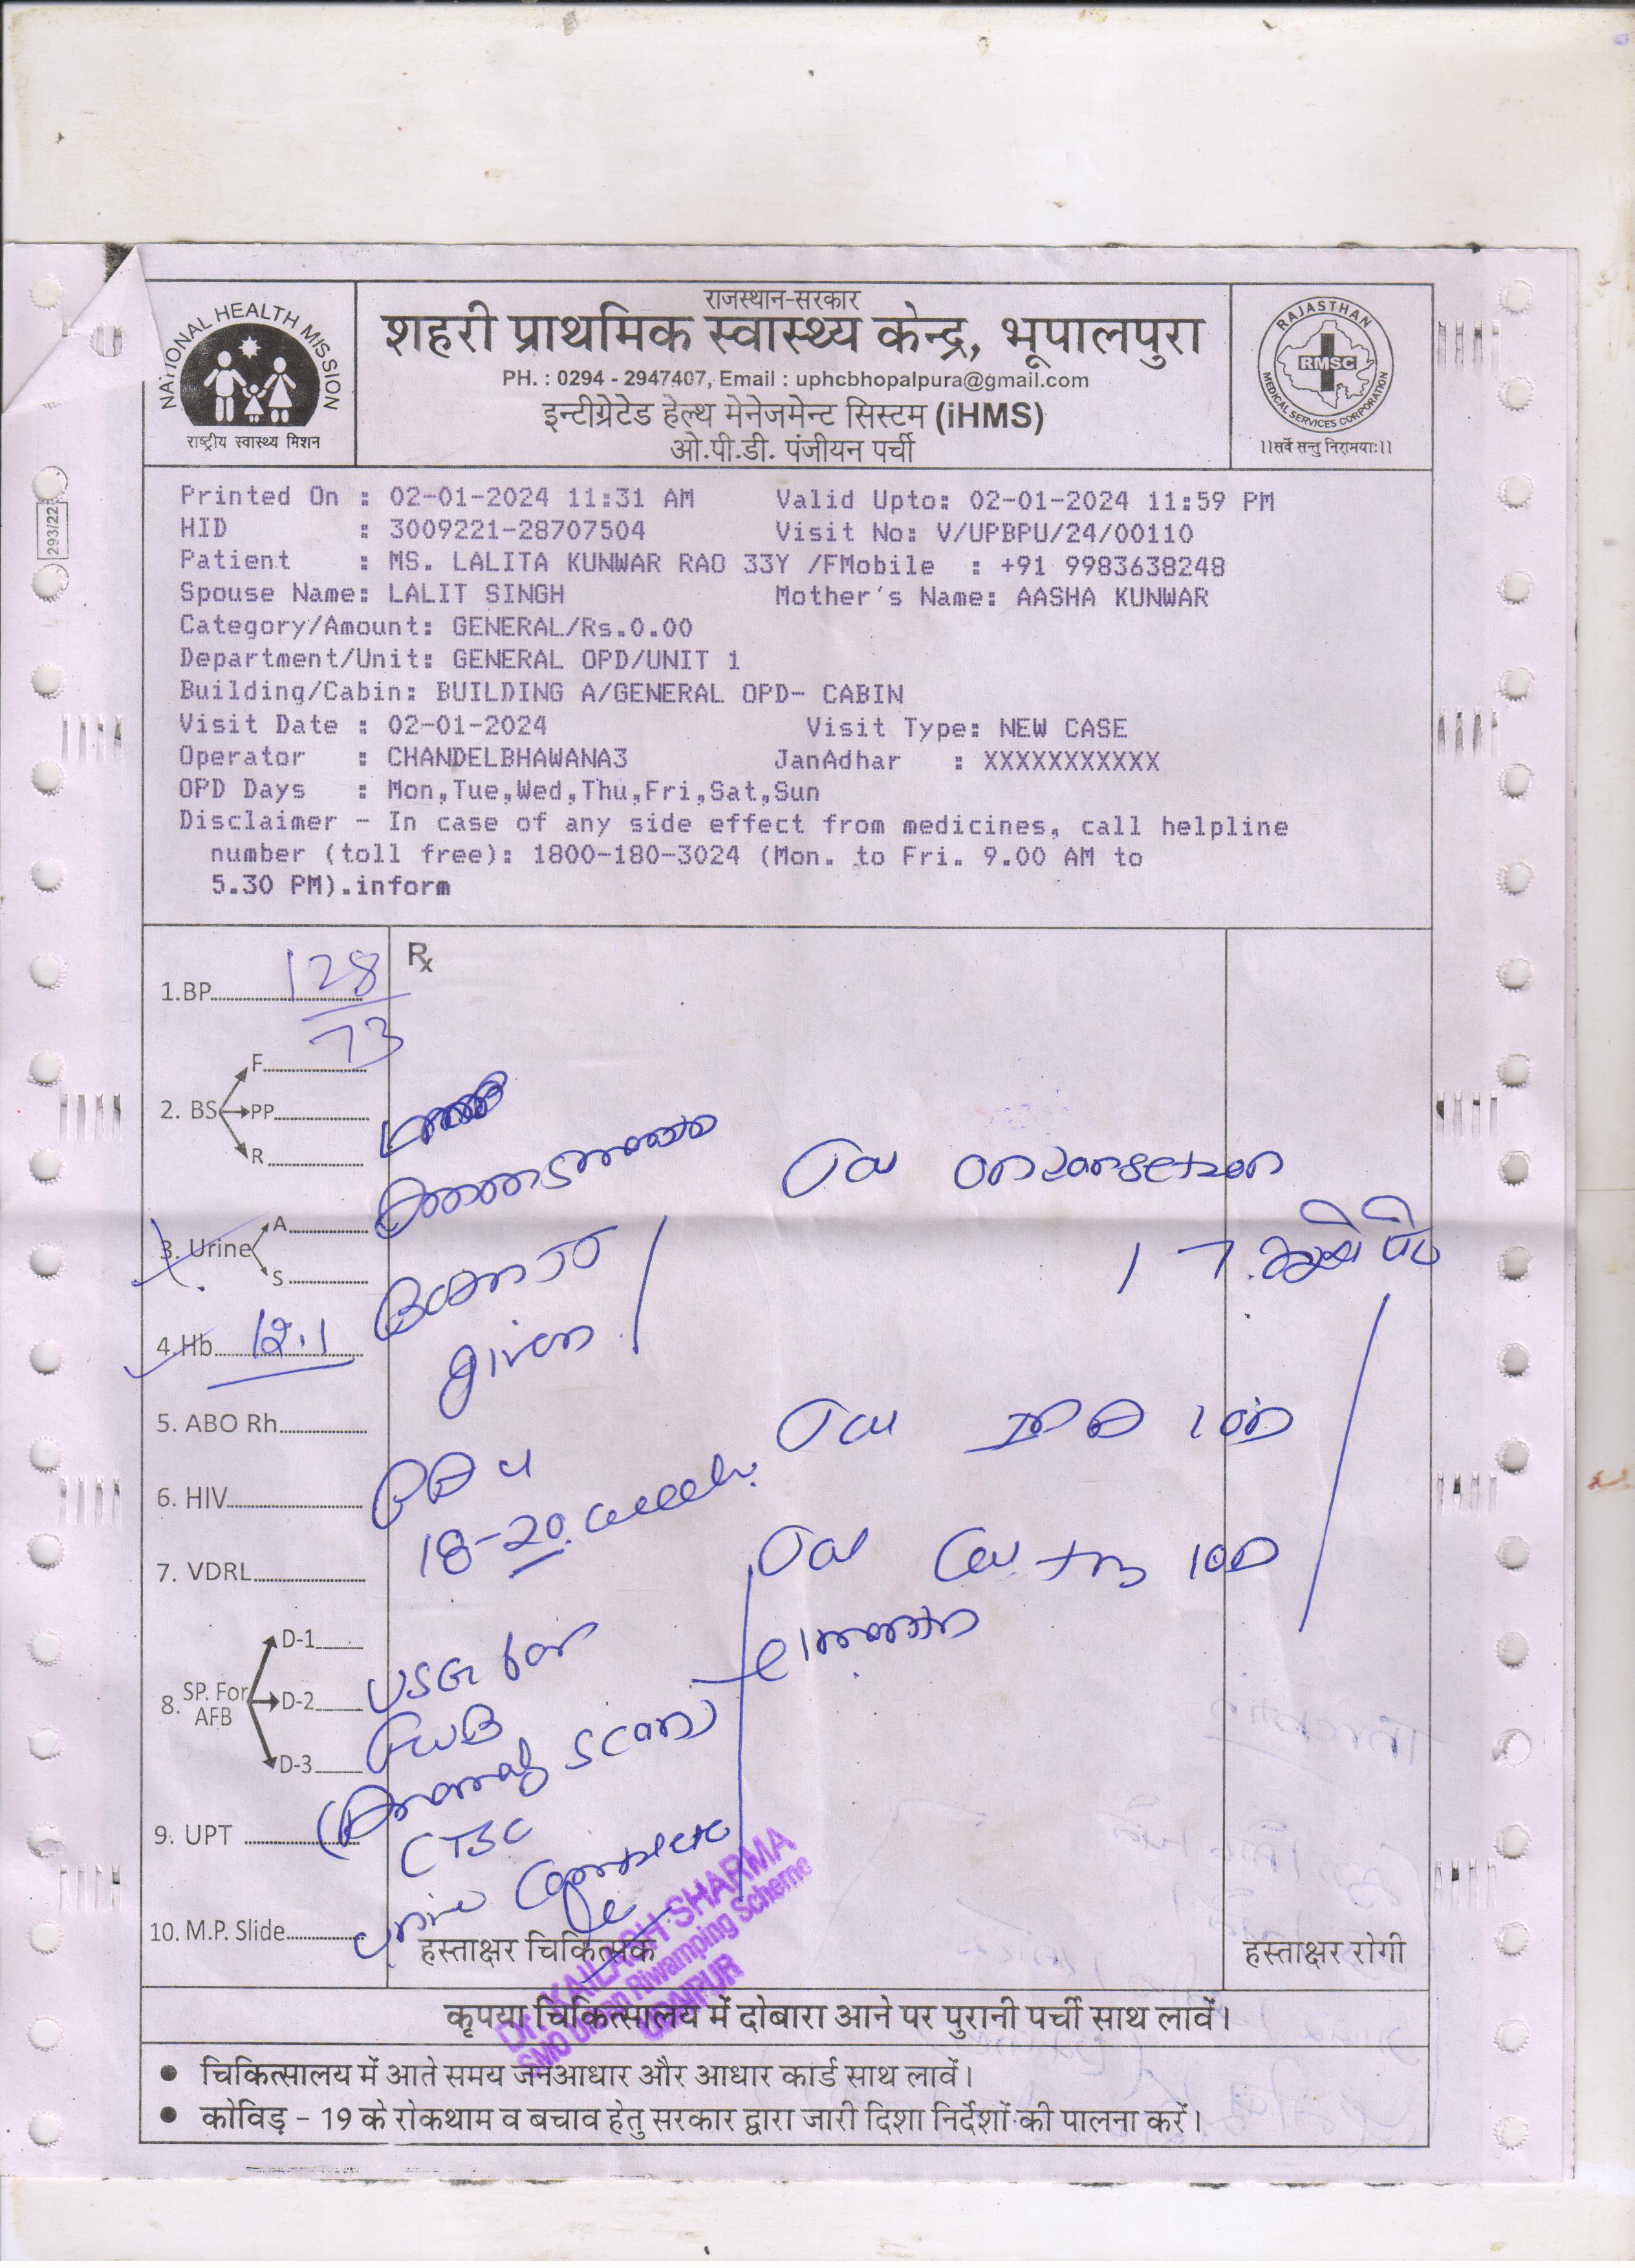 राजस्थान-सरकार
शहरी प्राथमिक स्वास्थ्य केन्द्र, भूपालपुरा
PH. : 0294 - 2947407, Email : uphcbhopalpura@gmail.com
इन्टीग्रेटेड हेल्थ मेनेजमेन्ट सिस्टम (iHMS)
ओ.पी.डी. पंजीयन पर्ची
NATIONAL HEALTH MISSION
राष्ट्रीय स्वास्थ्य मिशन
RAJASTHAN
RMSC
MEDICAL SERVICES CORPORATION
।।सर्वे सन्तु निरामयाः।।
293/22
Printed On : 02-01-2024 11:31 AM Valid Upto: 02-01-2024 11:59 PM
HID : 3009221-28707504 Visit No: V/UPBPU/24/00110
Patient : MS. LALITA KUNWAR RAO 33Y /FMobile : +91 9983638248
Spouse Name: LALIT SINGH Mother's Name: AASHA KUNWAR
Category/Amount: GENERAL/Rs.0.00
Department/Unit: GENERAL OPD/UNIT 1
Building/Cabin: BUILDING A/GENERAL OPD- CABIN
Visit Date : 02-01-2024 Visit Type: NEW CASE
Operator : CHANDELBHAWANA3 JanAdhar : XXXXXXXXXXX
OPD Days : Mon,Tue,Wed,Thu,Fri,Sat,Sun
Disclaimer - In case of any side effect from medicines, call helpline
number (toll free): 1800-180-3024 (Mon. to Fri. 9.00 AM to
5.30 PM).inform
Rx
1.BP 128/73
2. BS F
PP
R
3. Urine A
S
4. Hb 12.1
given
5. ABO Rh
18-20 week
6. HIV
7. VDRL
8. SP. For AFB D-1
D-2
D-3
USG for
FWB
scan)
9. UPT
10. M.P. Slide
Urine Complete
हस्ताक्षर चिकित्सक
हस्ताक्षर रोगी
Dr. KAILASH SHARMA
UDAIPUR
कृपया चिकित्सालय में दोबारा आने पर पुरानी पर्ची साथ लावें।
● चिकित्सालय में आते समय जनआधार और आधार कार्ड साथ लावें।
● कोविड़ - 19 के रोकथाम व बचाव हेतु सरकार द्वारा जारी दिशा निर्देशों की पालना करें।